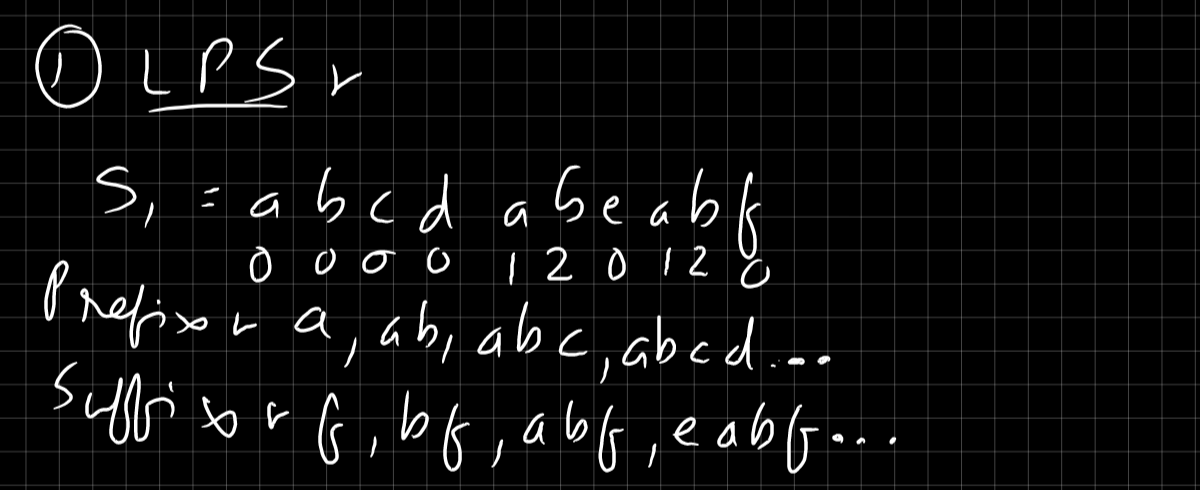 ① LPS :-
S₁ = a b c d a b e a b f
0 0 0 0 1 2 0 1 2 0
Prefix :- a, ab, abc, abcd...
Suffix :- f, bf, abf, eabf...